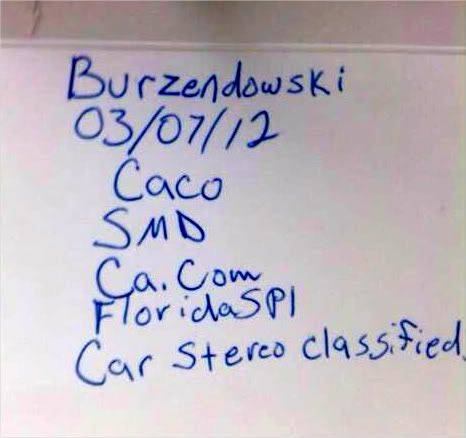 Burzendowski
03/07/12
Caco
SMD
Ca.Com
FloridaSPl
Car Stereo classified.